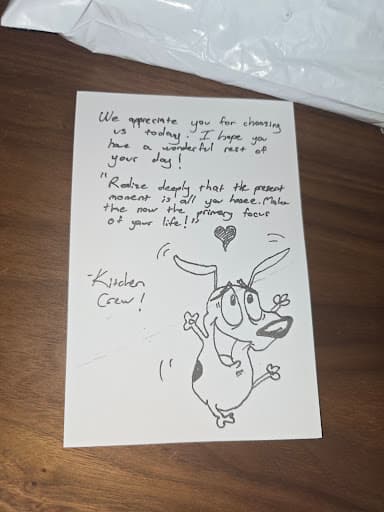 We appreciate you for choosing
us today! I hope you
have a wonderful rest of
your day!
"Realize deeply that the present
moment is all you have. Make
the now the primary focus
of your life!"
-Kitchen
Crew!